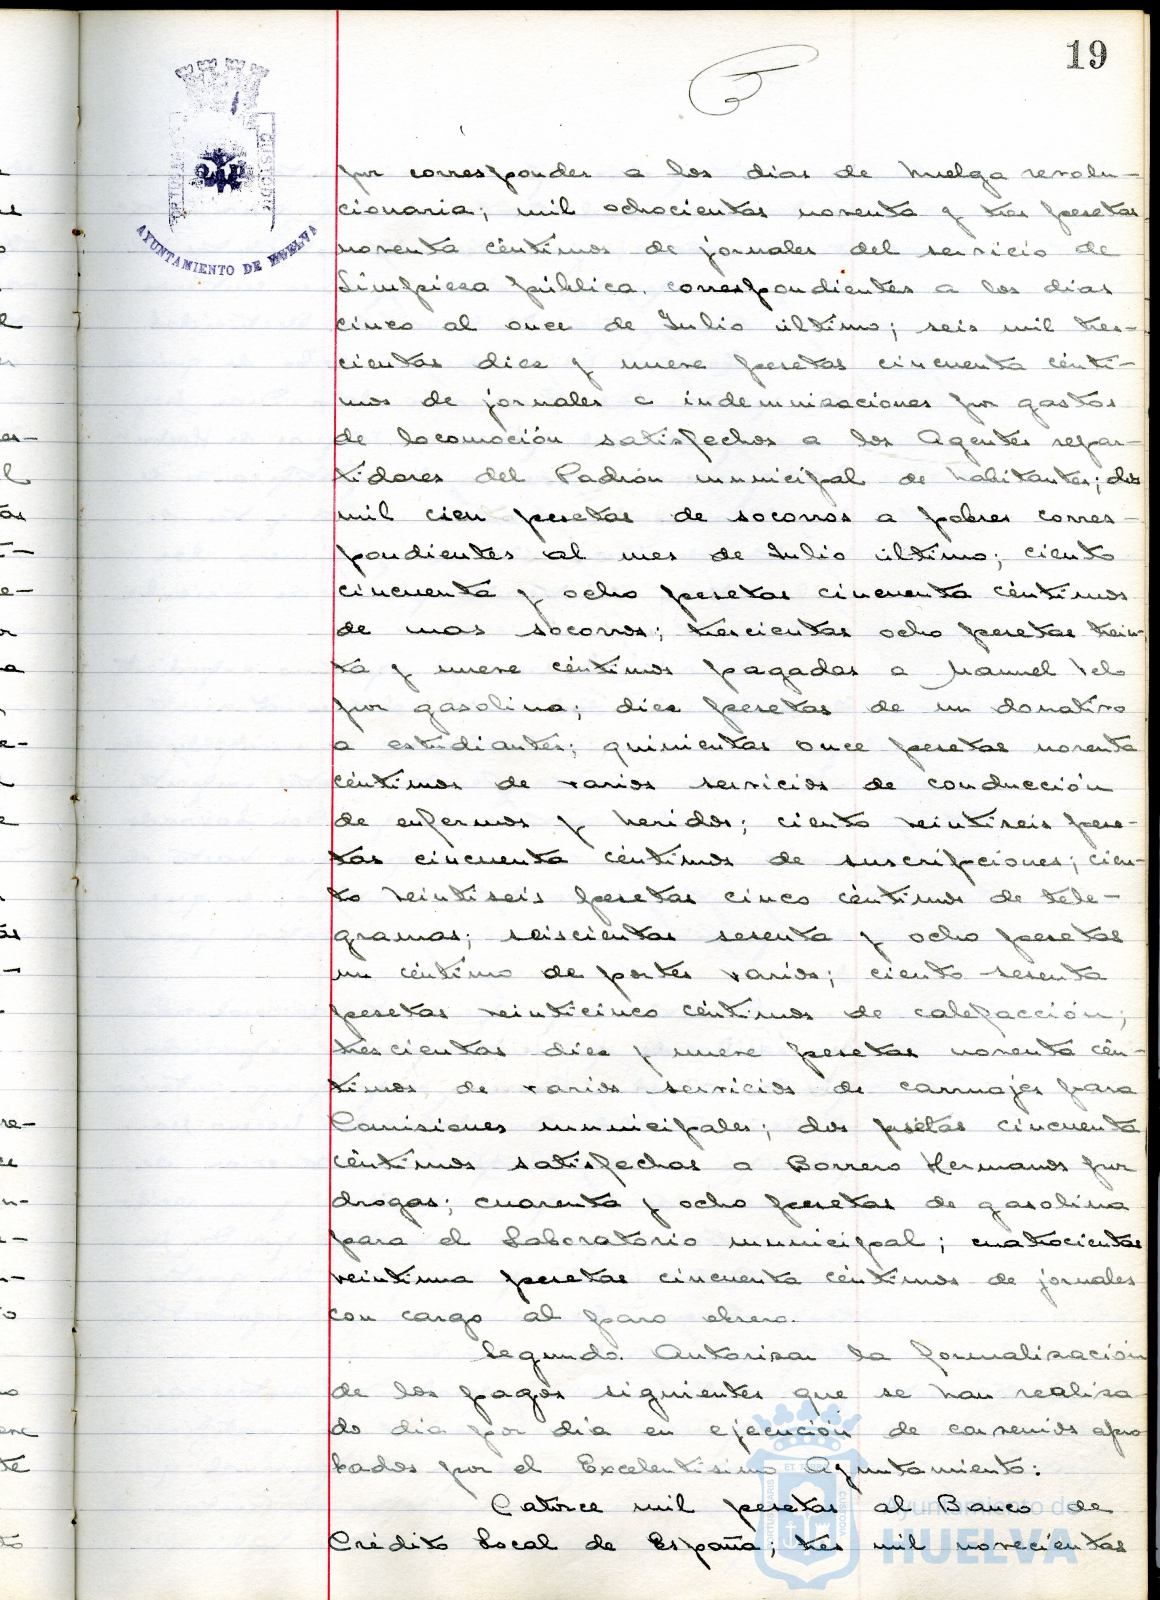 19
AYUNTAMIENTO DE HUELVA
por corresponder a los dias de huelga revolu-
cionaria; mil ochocientas noventa y tres pesetas
noventa céntimos de jornales del servicio de
Limpieza pública, correspondientes a los dias
cinco al once de Julio último; seis mil tres-
cientas diez y nueve pesetas cincuenta cénti-
mos de jornales e indemnizaciones por gastos
de locomoción satisfechos a los Agentes repar-
tidores del Padrón municipal de habitantes; dos
mil cien pesetas de socorros a pobres corres-
pondientes al mes de Julio último; ciento
cincuenta y ocho pesetas cincuenta céntimos
de mas socorros; trescientas ocho pesetas trein-
ta y nueve céntimos pagadas a Manuel Velo
por gasolina; diez pesetas de un donativo
a estudiantes; quinientas once pesetas noventa
céntimos de varios servicios de conducción
de enfermos y heridos; ciento veintiseis pese-
tas cincuenta céntimos de suscripciones; cien-
to veintiseis pesetas cinco céntimos de tele-
gramas; seiscientas sesenta y ocho pesetas
un céntimo de portes varios; ciento sesenta
pesetas veinticinco céntimos de calefacción;
trescientas diez y nueve pesetas noventa cén-
timos de varios servicios de carruajes para
Comisiones municipales; dos psetas cincuenta
céntimos satisfechas a Borrero Hermanos por
drogas; cuarenta y ocho pesetas de gasolina
para el Laboratorio municipal; cuatrocientas
veintiuna pesetas cincuenta céntimos de jornales
con cargo al paro obrero.
Segundo. Autorizar la formalización
de los pagos siguientes que se han realiza
do dia por dia en ejecución de convenios apro
bados por el Excelentísimo Ayuntamiento:
Catorce mil pesetas al Banco de
Crédito Local de España; tres mil novecientas
Ayuntamiento de
HUELVA